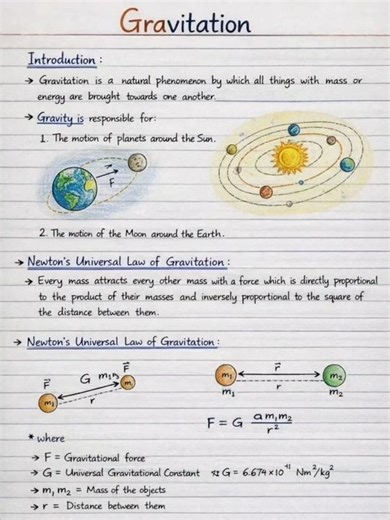 Gravitation
Introduction :
→ Gravitation is a natural phenomenon by which all things with mass or
energy are brought towards one another.
→ Gravity is responsible for:
1. The motion of planets around the Sun.
F
2. The motion of the Moon around the Earth.
→ Newton's Universal Law of Gravitation :
→ Every mass attracts every other mass with a force which is directly proportional
to the product of their masses and inversely proportional to the square of
the distance between them.
→ Newton's Universal Law of Gravitation :
F⃗ G F⃗
m₁ r m
r⃗
m₁ r m₂
m₁ m₂
F = G am₁m₂/r²
* where
→ F = Gravitational force
→ G = Universal Gravitational Constant G = 6.674 × 10 Nm²/kg²
→ m₁ m₂ = Mass of the objects
→ r = Distance between them